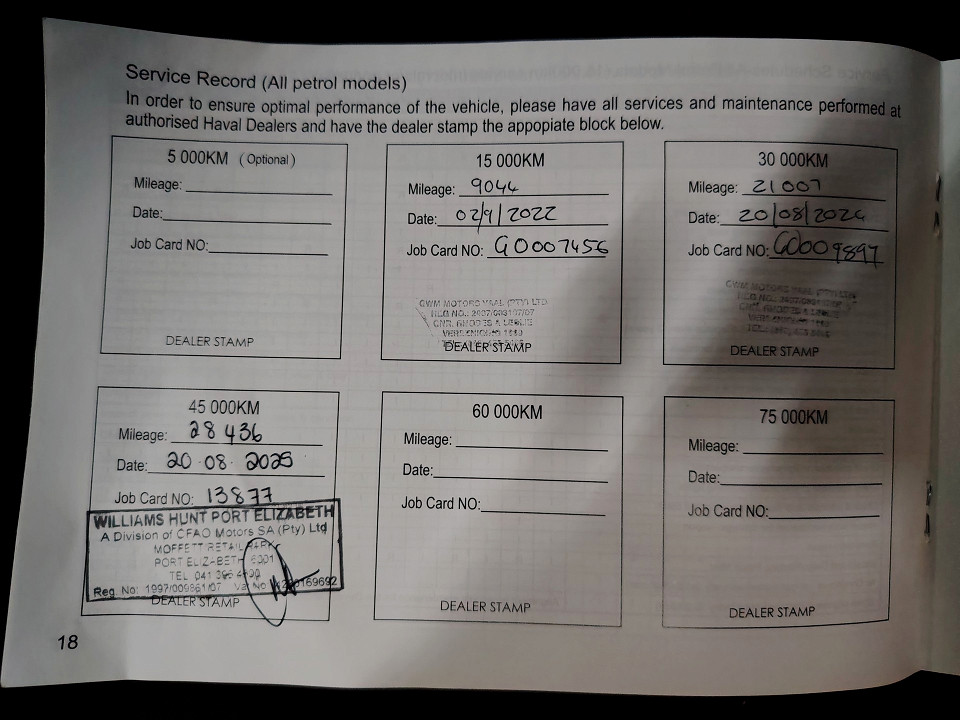 Service Record (All petrol models)
In order to ensure optimal performance of the vehicle, please have all services and maintenance performed at
authorised Haval Dealers and have the dealer stamp the appopiate block below.
5 000KM (Optional)
Mileage:
Date:
Job Card NO:
DEALER STAMP
15 000KM
Mileage: 9044
Date: 02/9/2022
Job Card NO: G0007456
GWM MOTORS VAAL (PTY) LTD
CNR. RHODES & LESLIE
DEALER STAMP
30 000KM
Mileage: 21007
Date: 20/08/2024
Job Card NO: G0009897
GWM MOTORS VAAL (PTY) LTD
CNR. RHODES & LESLIE
DEALER STAMP
45 000KM
Mileage: 28 436
Date: 20.08.2025
Job Card NO: 13877
WILLIAMS HUNT PORT ELIZABETH
A Division of CFAO Motors SA (Pty) Ltd
MOFFETT RETAIL PARK
PORT ELIZABETH 6001
TEL 041
Reg No: 1997/009861/07
DEALER STAMP
60 000KM
Mileage:
Date:
Job Card NO:
DEALER STAMP
75 000KM
Mileage:
Date:
Job Card NO:
DEALER STAMP
18